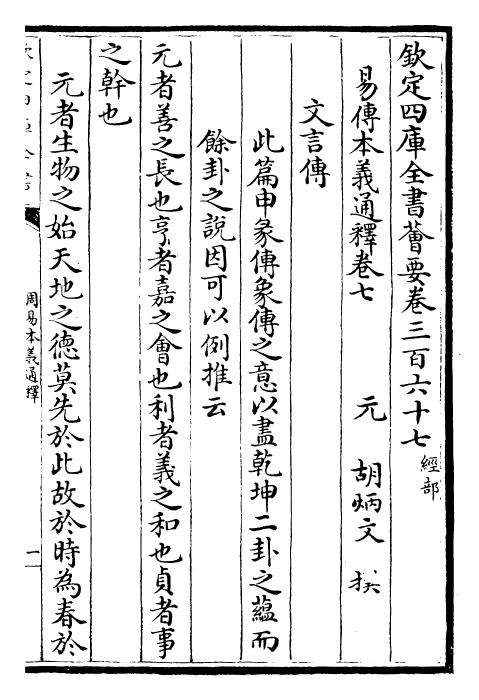 欽定四庫全書薈要卷三百六十七 經部
易傳本義通釋卷七 元 胡炳文 撰
文言傳
此篇申彖傳象傳之意以盡乾坤二卦之蘊而
餘卦之說因可以例推云
元者善之長也亨者嘉之會也利者義之和也貞者事
之幹也
元者生物之始天地之德莫先於此故於時為春於
周易本義通釋
一